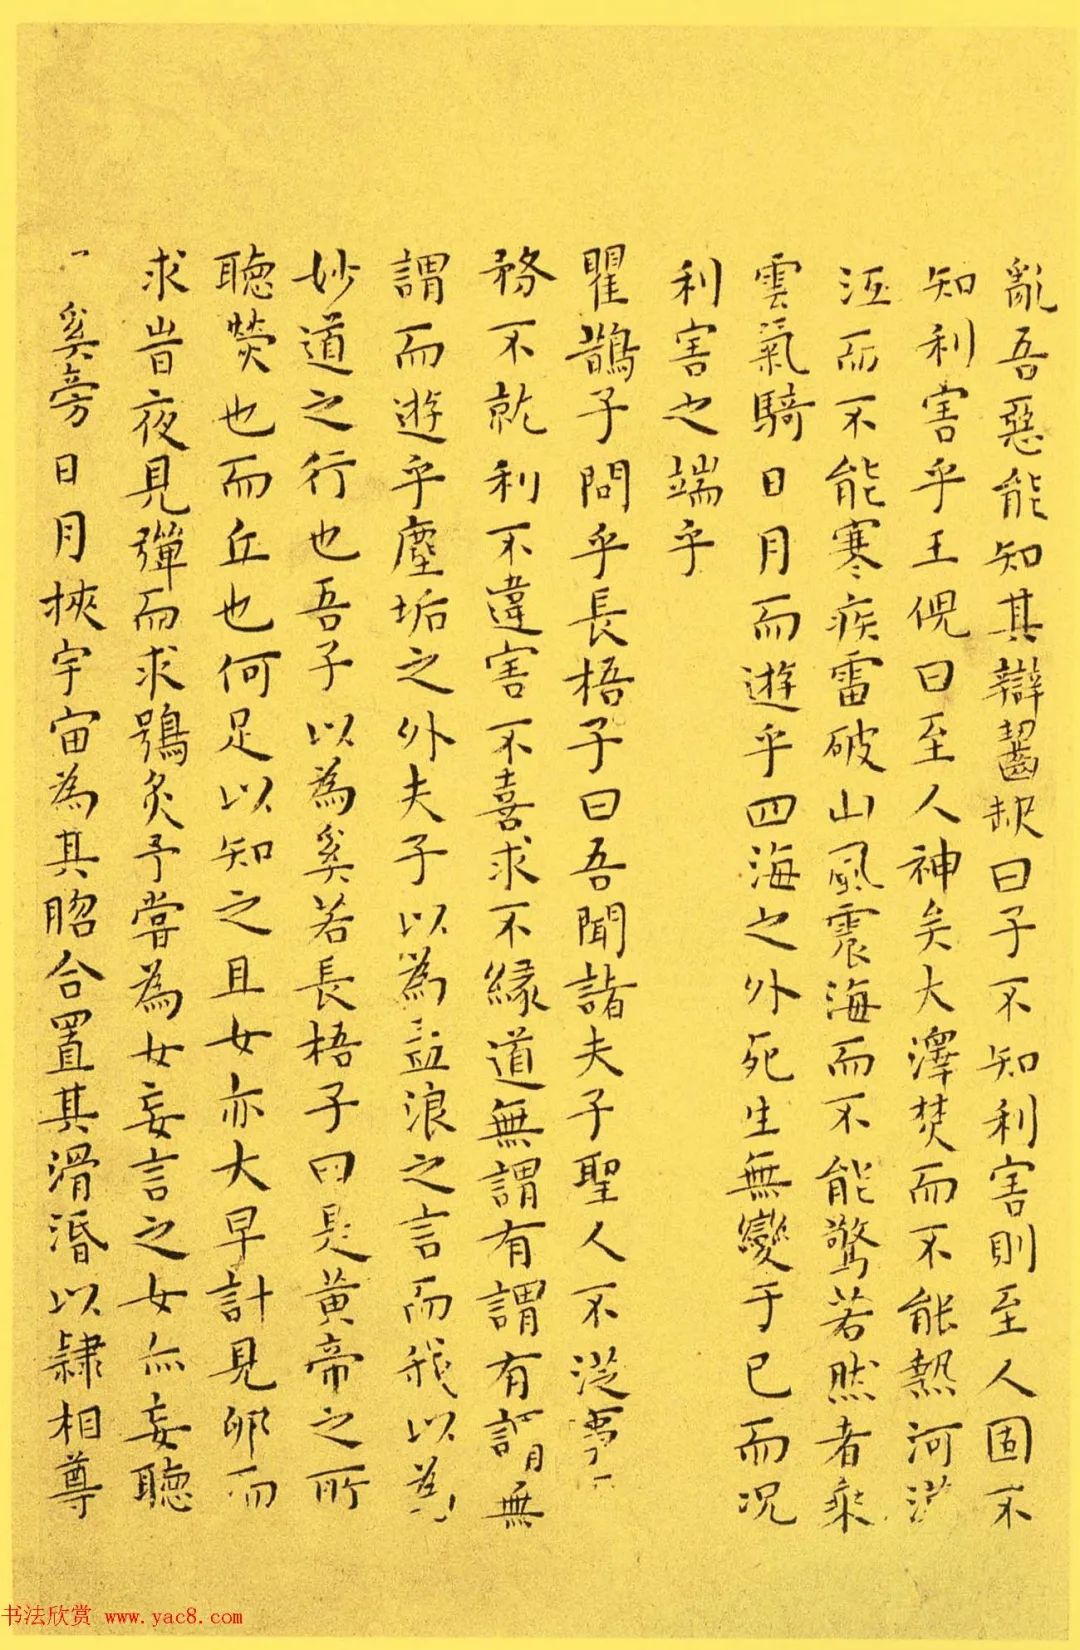 亂吾惡能知其辯齧缺曰子不知利害則至人固不
知利害乎王倪曰至人神矣大澤焚而不能熱河漢
沍而不能寒疾雷破山風震海而不能驚若然者乘
雲氣騎日月而遊乎四海之外死生無變于已而況
利害之端乎
瞿鵲子問乎長梧子曰吾聞諸夫子聖人不從事
務不就利不違害不喜求不緣道無謂有謂有謂無
謂而遊乎塵垢之外夫子以為孟浪之言而我以為
妙道之行也吾子以為奚若長梧子曰是黃帝之所
聽熒也而丘也何足以知之且女亦大早計見卵而
求旹夜見彈而求鴞炙予嘗為女妄言之女亦妄聽
奚旁日月挾宇宙為其脗合置其滑涽以隸相尊
书法欣赏 www.yac8.com